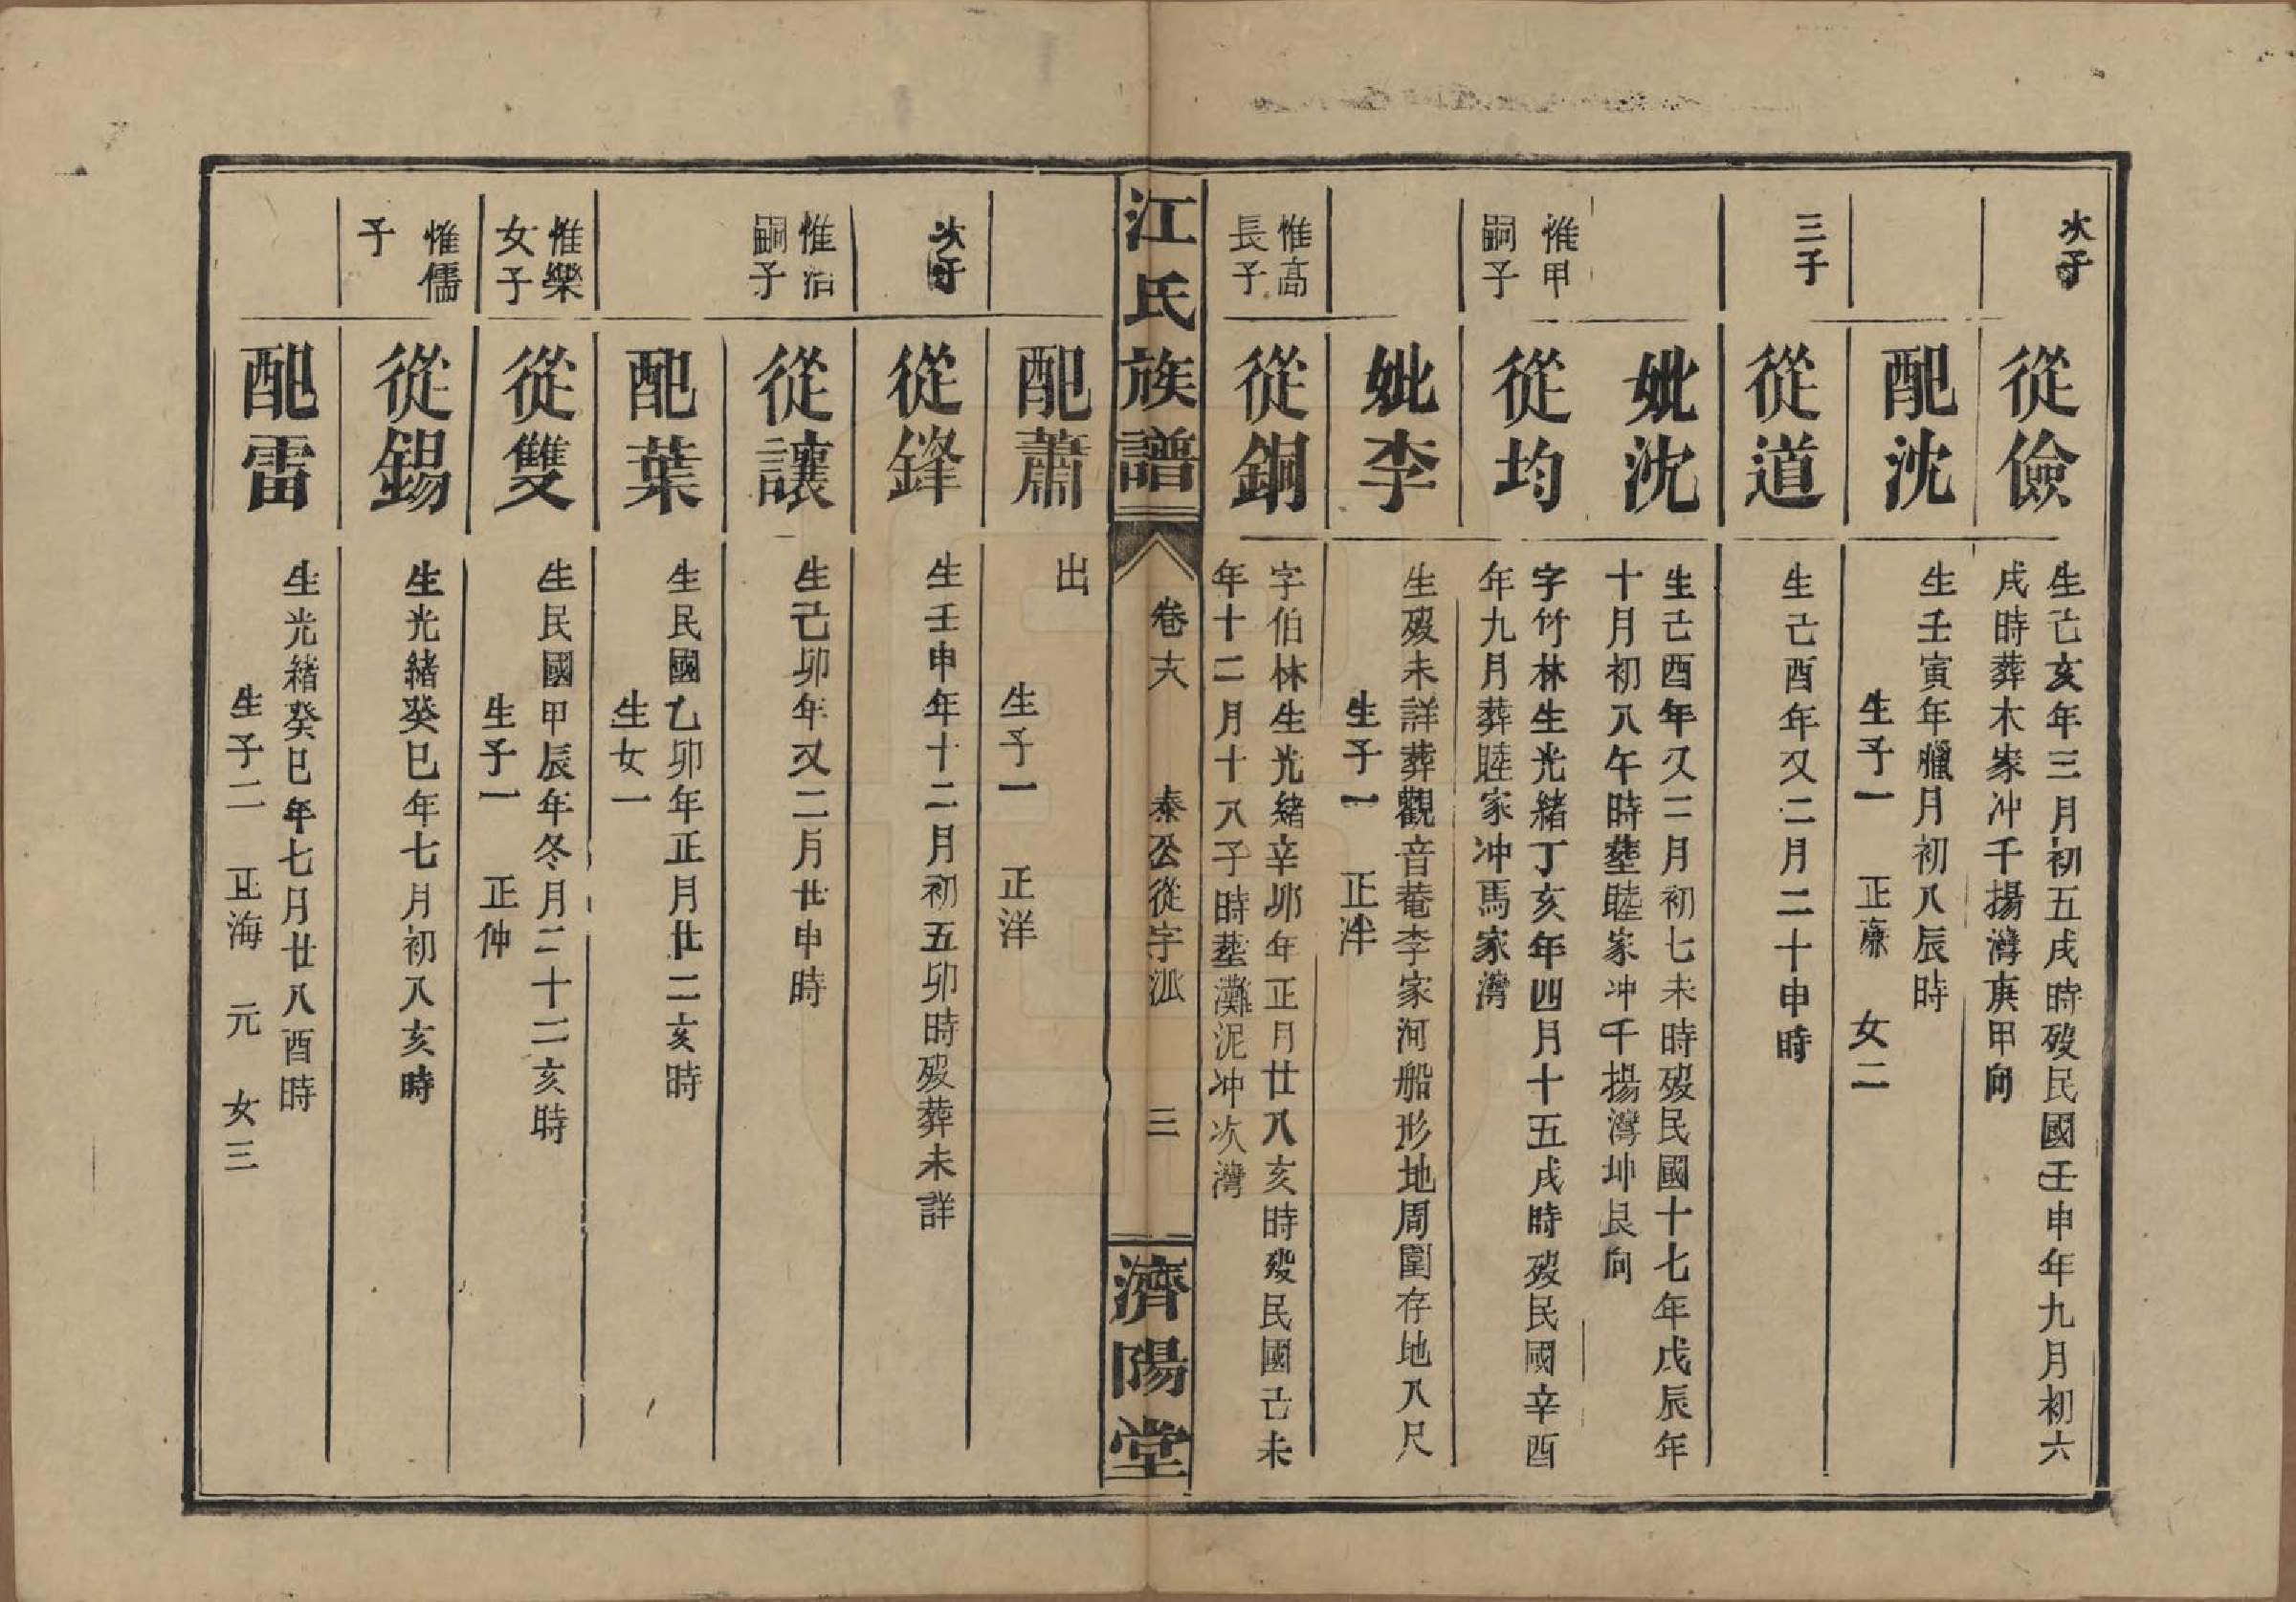 次子
從儉
生己亥年三月初五戌時歿民國壬申年九月初六
戌時葬木家冲千揚灣庚甲向
配沈
生壬寅年臘月初八辰時
生子一　正康　女二
三子
從道
生己酉年又二月二十申時
妣沈
生己酉年又二月初七未時歿民國十七年戊辰年
十月初八午時塟睦家冲千揚灣坤艮向
惟甲
嗣子
從均
字竹林生光緒丁亥年四月十五戌時歿民國辛酉
年九月葬睦家冲馬家灣
妣李
生歿未詳葬觀音菴李家河船形地周圍存地八尺
生子一　正泮
惟高
長子
從銅
字伯林生光緒辛卯年正月廿八亥時歿民國己未
年十二月十八子時塟灘泥冲次灣
江氏族譜
卷十八
泰公從字派
三
濟陽堂
配蕭
出
生子一　正洋
次子
從鋒
生壬申年十二月初五卯時歿葬未詳
惟治
嗣子
從讓
生己卯年又二月廿申時
配葉
生民國乙卯年正月廿二亥時
生女一
惟樂
女子
從雙
生民國甲辰年冬月二十二亥時
生子一　正仲
惟儒
子
從錫
生光緒癸巳年七月初八亥時
配雷
生光緒癸巳年七月廿八酉時
生子二　正海　元　女三